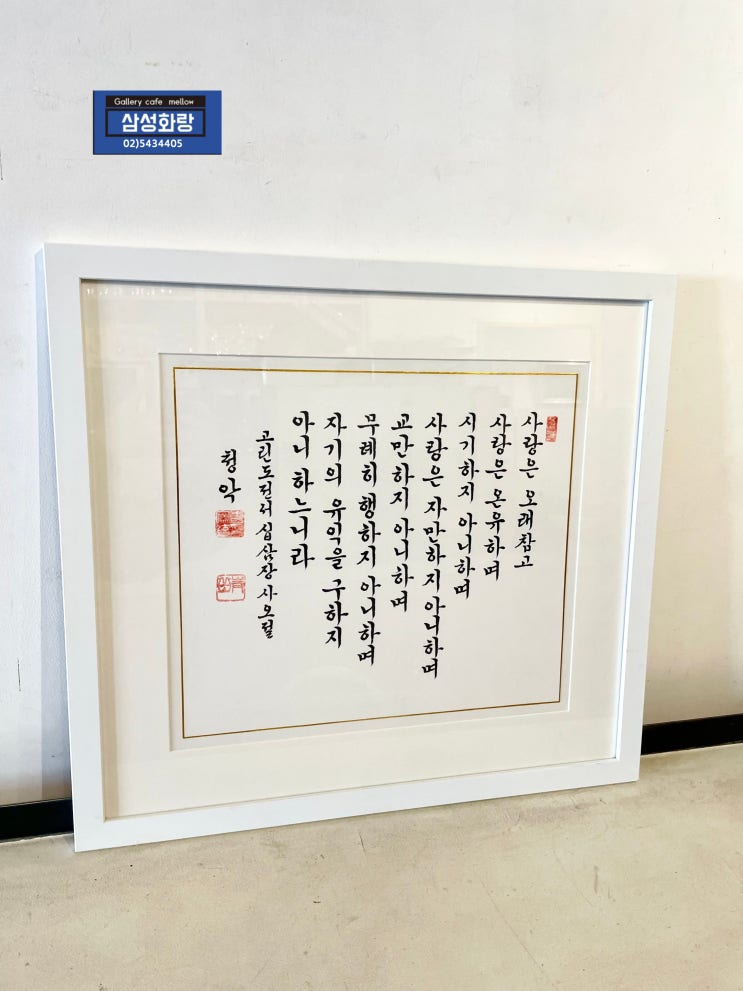 Gallery cafe mellow
삼성화랑
02)5434405
사랑은 오래참고
사랑은 온유하며
시기하지 아니하며
사랑은 자만하지 아니하며
교만하지 아니하며
무례히 행하지 아니하며
자기의 유익을 구하지
아니 하느니라
고린도전서 십삼장 사오절
청악